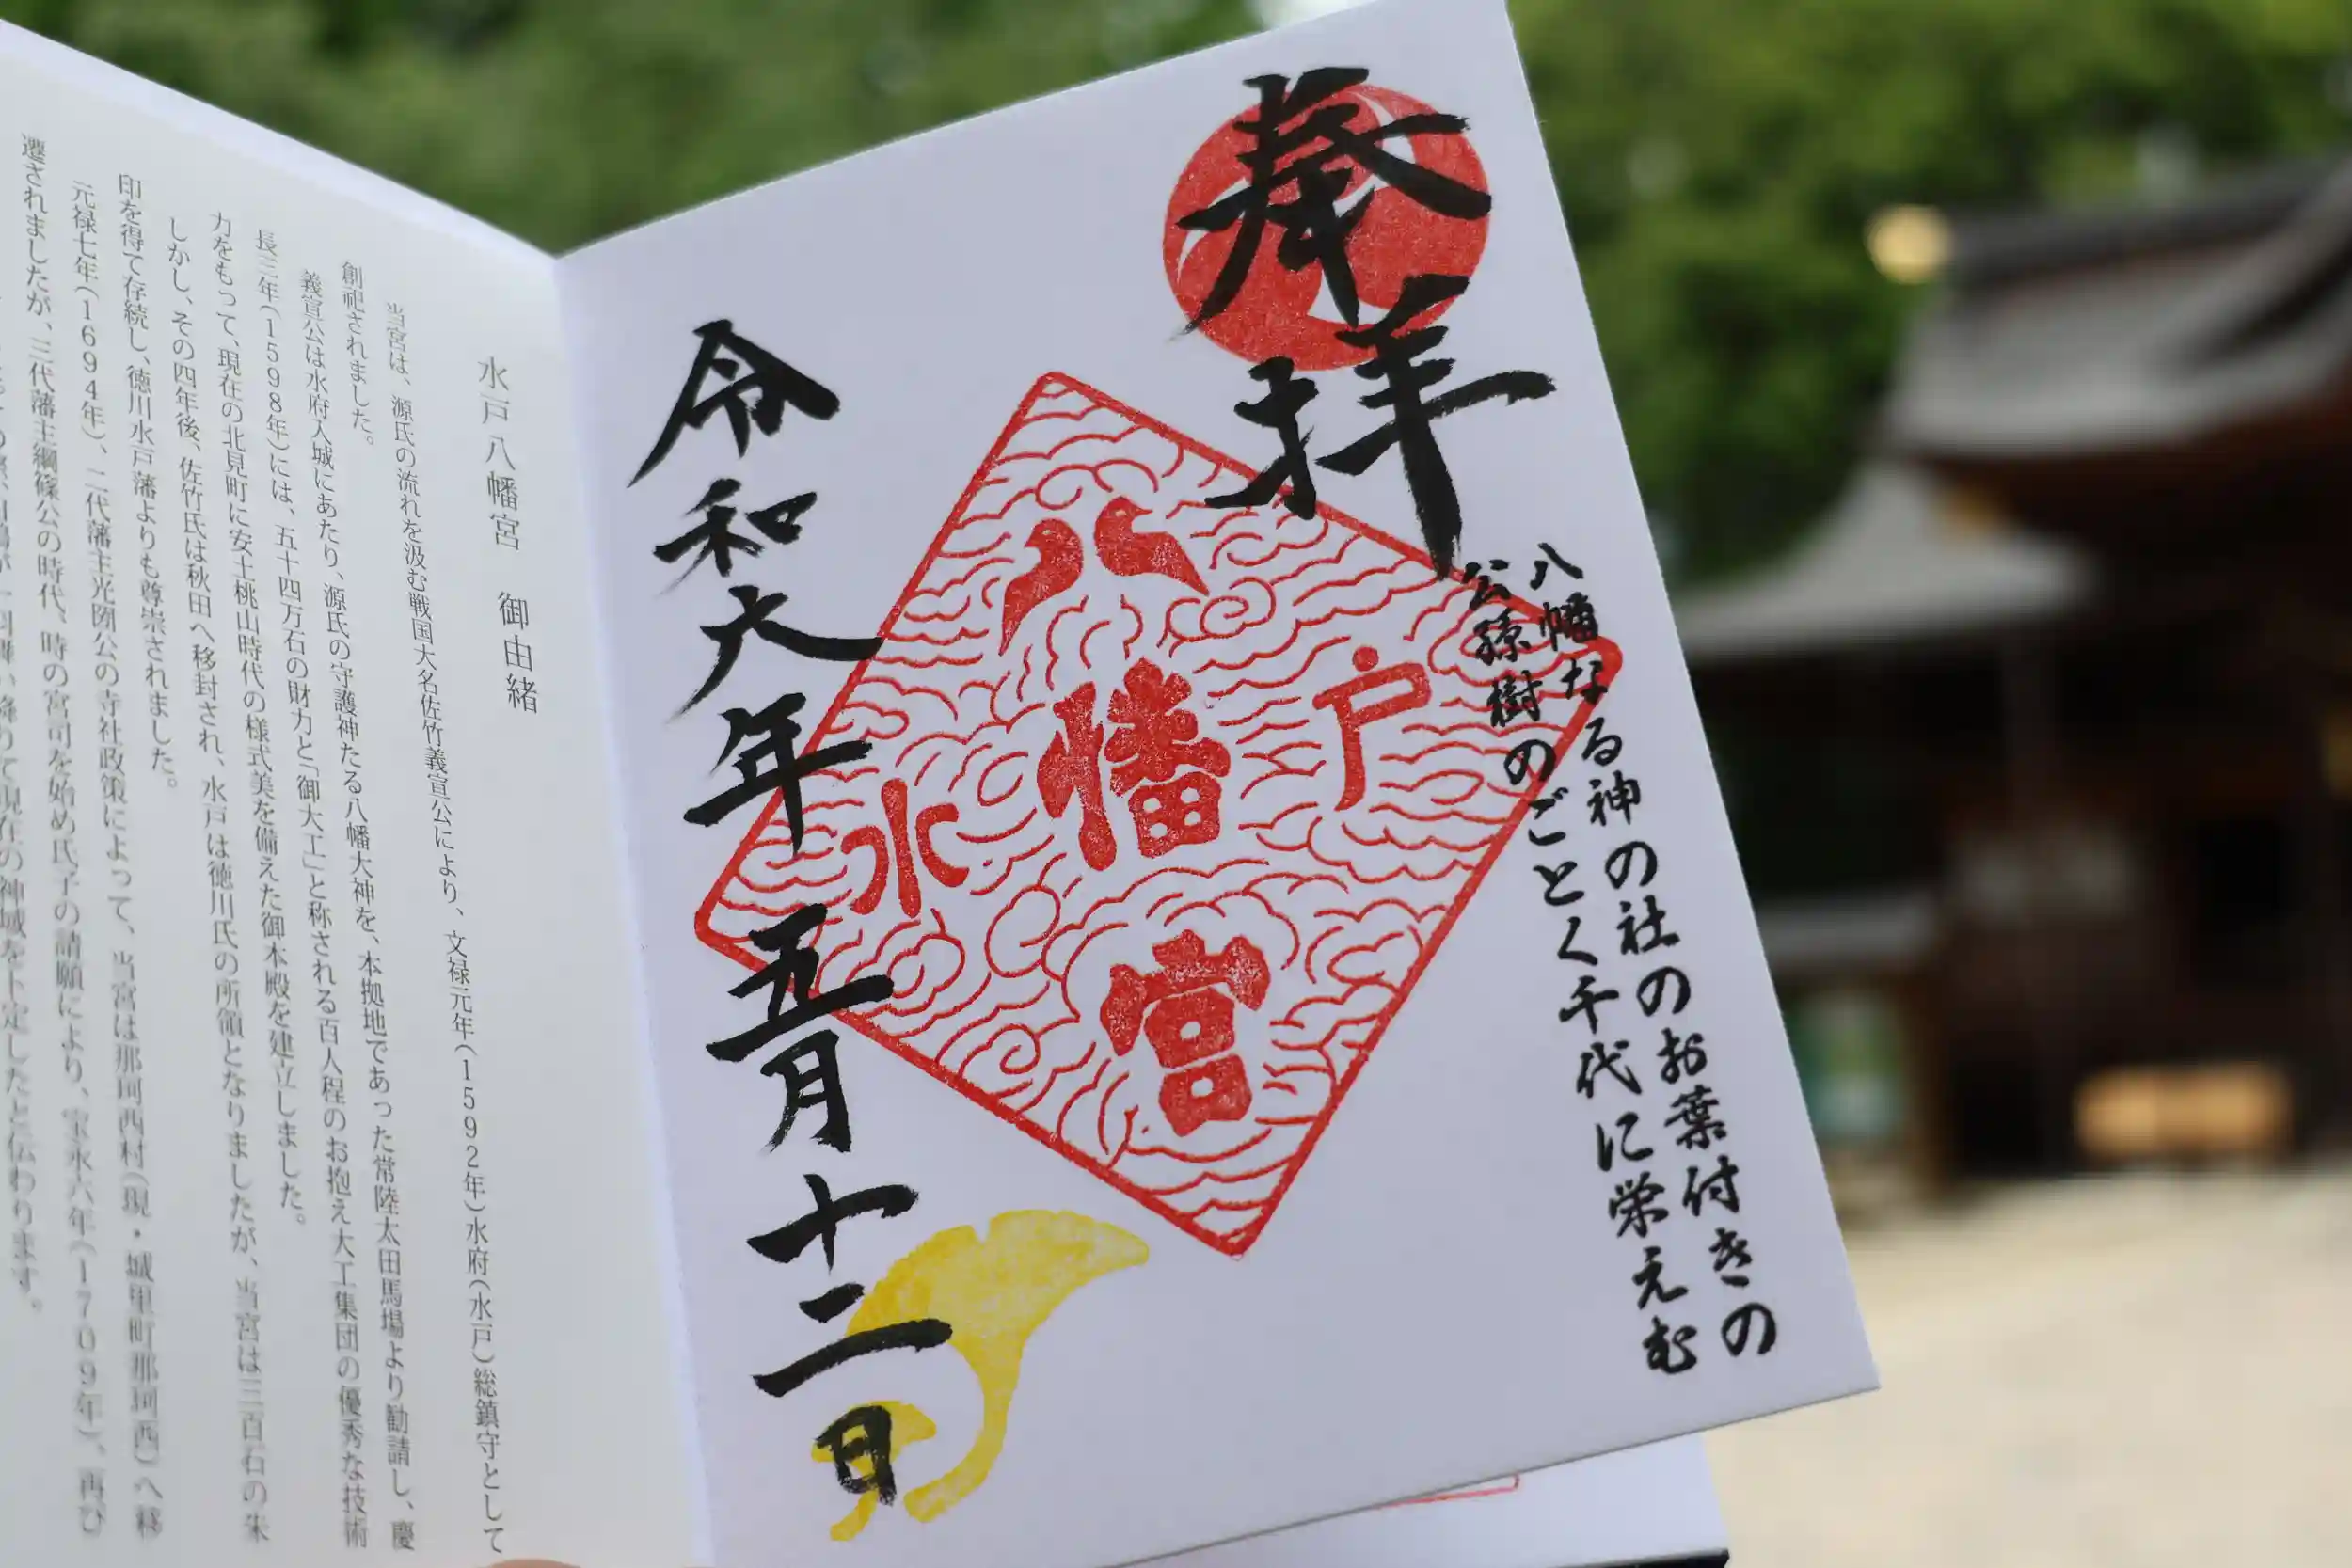 奉拝
八幡なる神の社のお葉付きの
公孫樹のごとく千代に栄えむ
八幡宮
水戸
令和六年五月十二日
水戸八幡宮 御由緒
当宮は、源氏の流れを汲む戦国大名佐竹義宣公により、文禄元年(1592年)水府(水戸)総鎮守として
創祀されました。
義宣公は水府入城にあたり、源氏の守護神たる八幡大神を、本拠地であった常陸太田馬場より勧請し、慶
長三年(1598年)には、五十四万石の財力と「御大工」と称される百人程のお抱え大工集団の優秀な技術
力をもって、現在の北見町に安土桃山時代の様式美を備えた御本殿を建立しました。
しかし、その四年後、佐竹氏は秋田へ移封され、水戸は徳川氏の所領となりましたが、当宮は三百石の朱
印を得て存続し、徳川水戸藩よりも尊崇されました。
元禄七年(1694年)、二代藩主光圀公の寺社政策によって、当宮は那珂西村(現・城里町那珂西)へ移
遷されましたが、三代藩主綱篠公の時代、時の宮司を始め氏子の請願により、宝永六年(1709年)、再び
舞い降りて現在の神域を卜定したと伝わります。